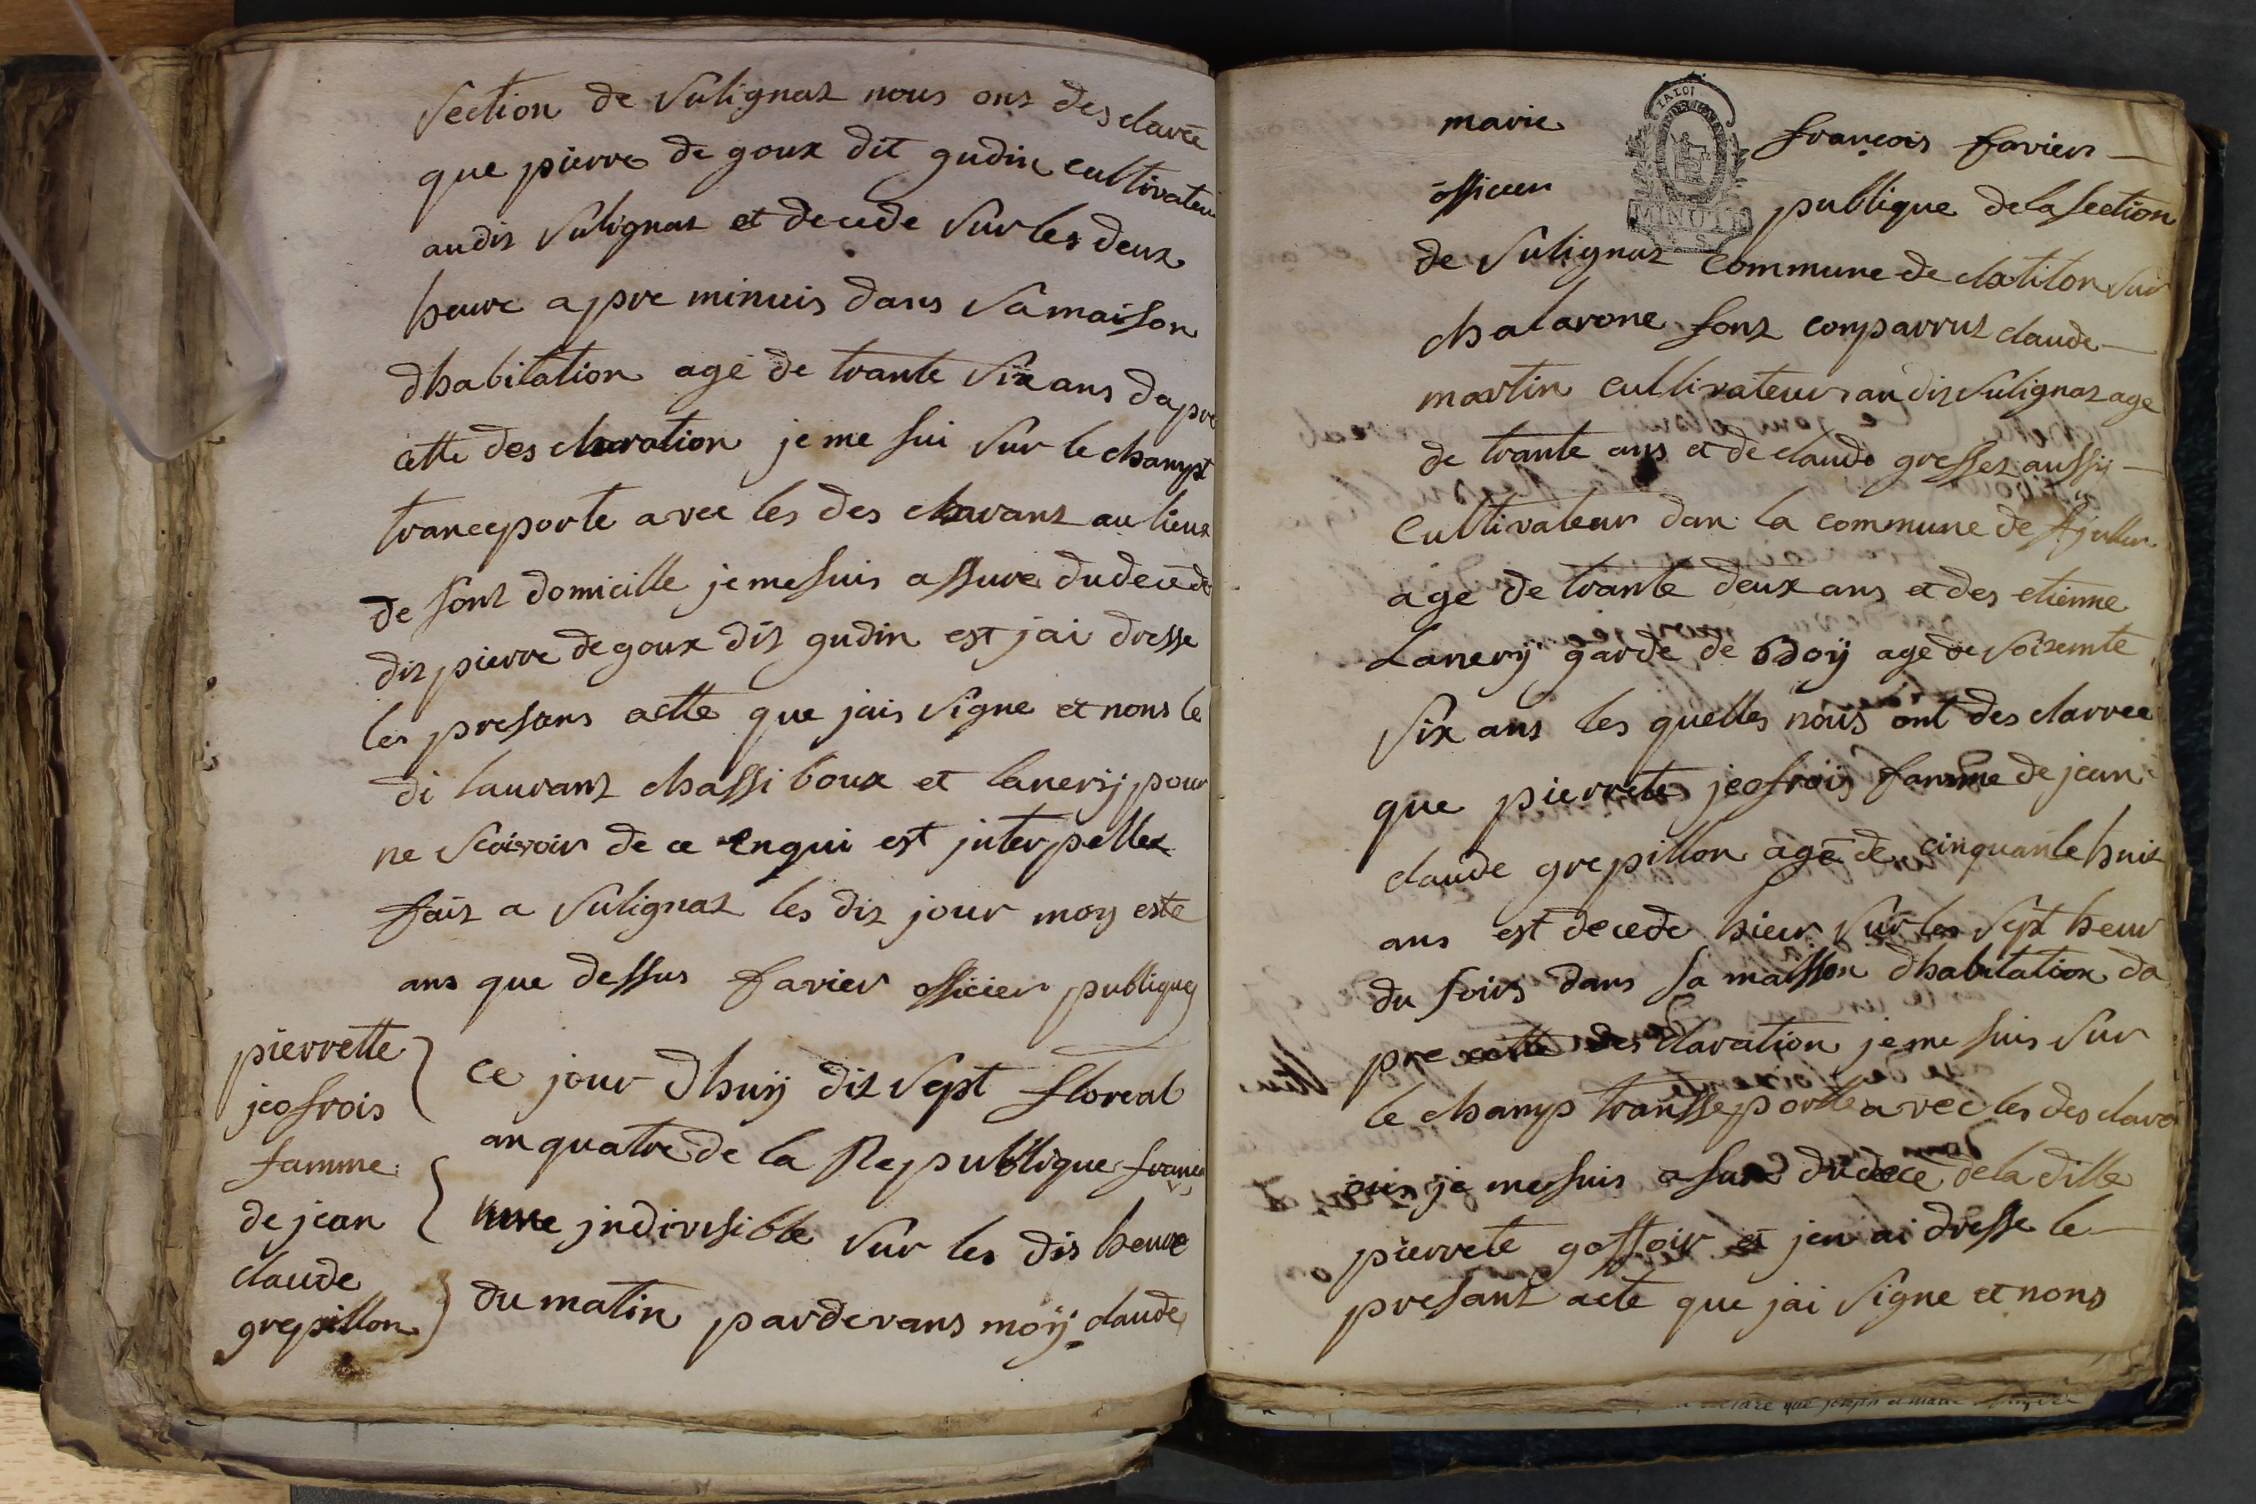 Section de Sulignat nous ont des clarée
que pierre de goux dit gudin cultivateu
audit Sulignat et decede Sur les deux
heure apre minuis dans Sa maison
dhabitation agé de trante Six ans dapre
cette des claration je me sui Sur le champt
tranceporte avec les des clarant au lieux
de sont domicille je me suis assure du decede
dit pierre de goux dit gudin est jai dresse
les presans actte que jais Signe et nons le
di laurant chassi boux et lanerij pour
ne Scavoir de ce enqui est jnterpellez
fait a Sulignat les dit jour moy este
ans que dessus favier officier publique
pierrette
jeofrois
famme
de jean
claude
grepillon
ce jour dhuij dix Sept floreal
an quatre de la Republique franc
une jndivisible Sur les dis heure
du matin pardevans moij claude
marie françois favier
officier publique de la Section
de Sulignat Commune de chatilon Sur
chalarone sont comparrut claude
martin cultivateur au dit Sulignat age
de trante ans et de claude gresset aussij
Cultivateur dan la commune de
age de trante deux ans et des etienne
Lanerij garde de Boij age de Soixente
Six ans les quelles nous ont des clarree
que pierrete jeofroij famme de jean
claude grepillon agé de cinquante huit
ans est decede hier Sur les Sept heur
du soirs dans sa maisson dhabitation da
pre cette des claration je me suis Sur
le champ transseporte avec les des clara
je me suis asure du decé de la ditte
pierrete goffoir et jen ai dresse le
presant acte que jai Signe et nons
LA LOI
MINUTE